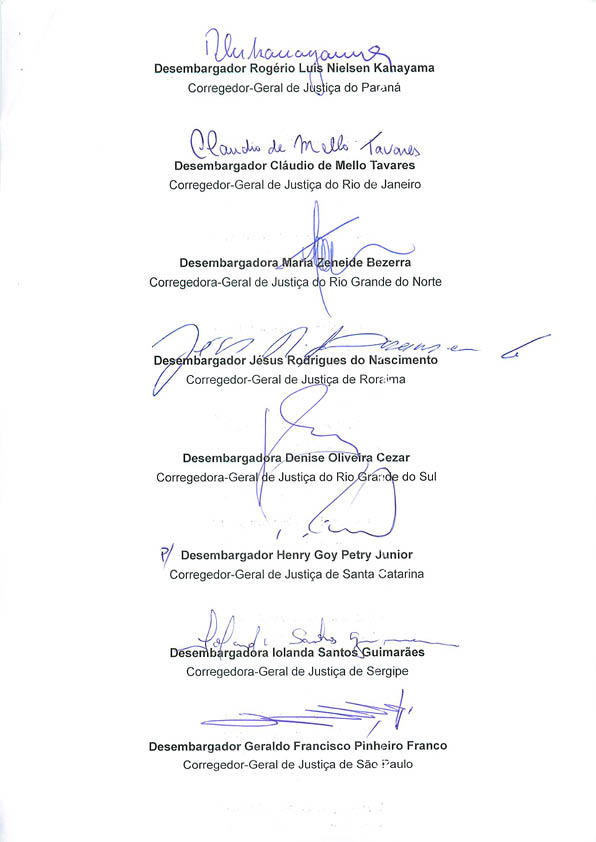 Desembargador Rogério Luis Nielsen Kanayama
Corregedor-Geral de Justiça do Paraná
Claudio de Mello Tavares
Desembargador Cláudio de Mello Tavares
Corregedor-Geral de Justiça do Rio de Janeiro
Desembargadora Maria Zeneide Bezerra
Corregedora-Geral de Justiça do Rio Grande do Norte
Desembargador Jésus Rodrigues do Nascimento
Corregedor-Geral de Justiça de Roraima
Desembargadora Denise Oliveira Cezar
Corregedora-Geral de Justiça do Rio Grande do Sul
P/ Desembargador Henry Goy Petry Junior
Corregedor-Geral de Justiça de Santa Catarina
Iolanda Santos Guimarães
Desembargadora Iolanda Santos Guimarães
Corregedora-Geral de Justiça de Sergipe
Desembargador Geraldo Francisco Pinheiro Franco
Corregedor-Geral de Justiça de São Paulo